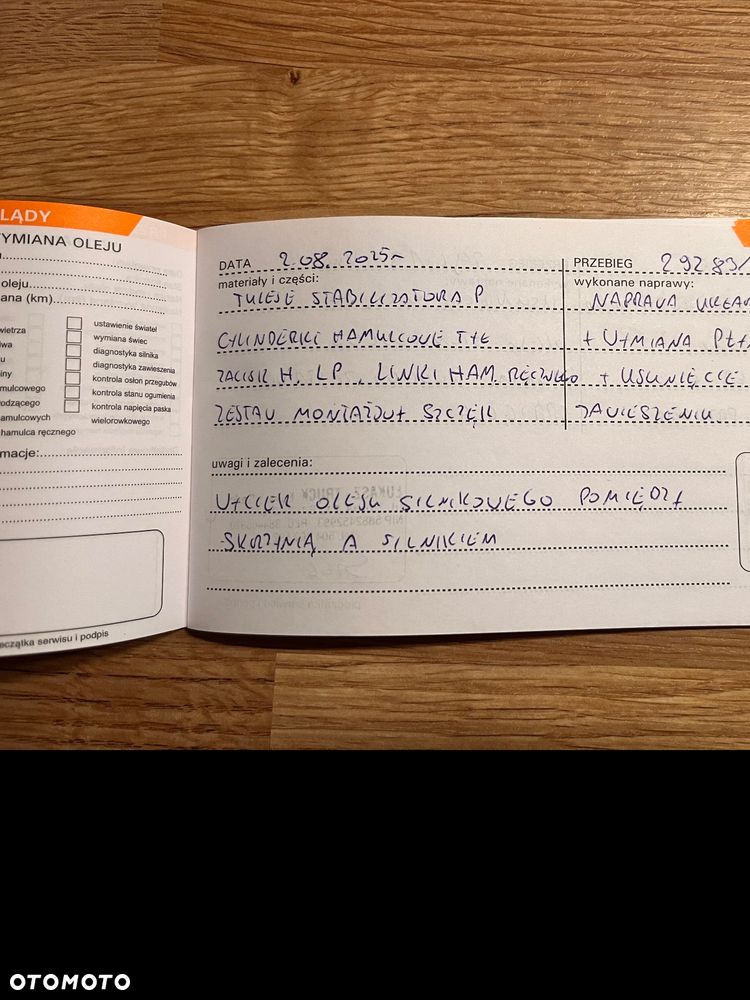 LĄDY
YMIANA OLEJU
oleju
ana (km)
wietrza
iwa
u
iny
mulcowego
odzącego
amulcowych
hamulca ręcznego
ustawienie świateł
wymiana świec
diagnostyka silnika
diagnostyka zawieszenia
kontrola osłon przegubów
kontrola stanu ogumienia
kontrola napięcia paska
wielorowkowego
macje:
eczątka serwisu i podpis
DATA 2.08.2025r
PRZEBIEG 29283
materiały i części:
TULEJE STABILIZATORA P
CYLINDERKI HAMULCOWE TYŁ
ZACISK H. LP. LINKI HAM. RĘCZNEGO
ZESTAW MONTAŻOWY SZCZĘK
wykonane naprawy:
NAPRAWA UKŁA
+ WYMIANA PŁY
+ USUNIĘCIE
ZAWIESZENIU
uwagi i zalecenia:
WYCIEK OLEJU SILNIKOWEGO POMIĘDZY
SKRZYNIĄ A SILNIKIEM
OTOMOTO